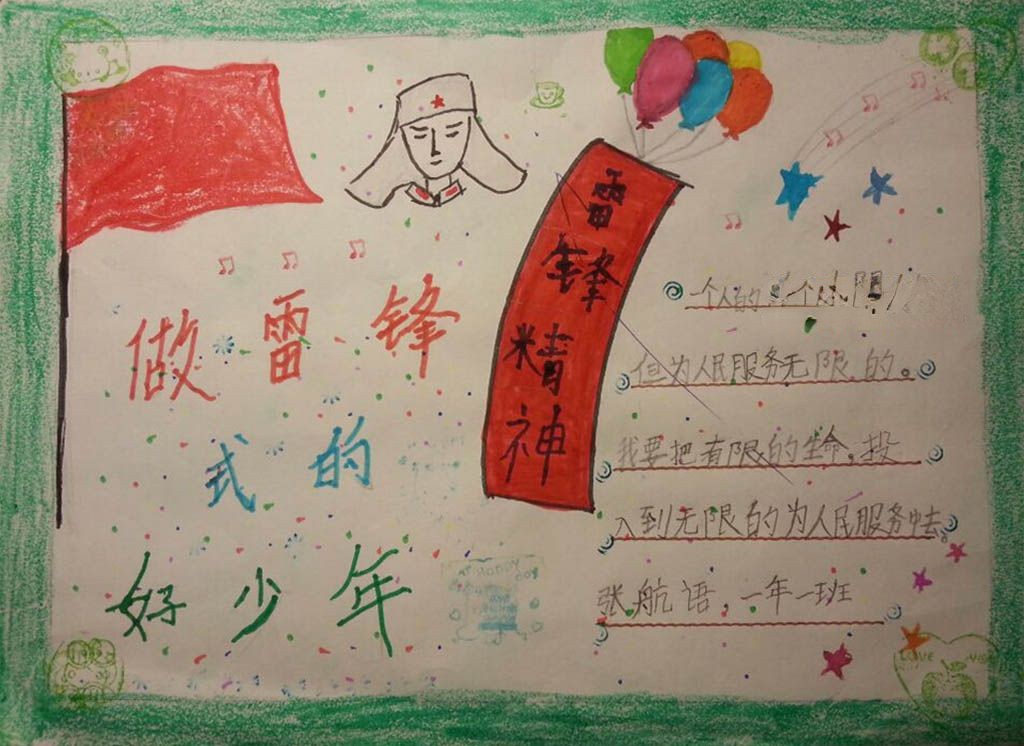 做雷锋
式的
好少年
雷锋精神
一个人的
但为人民服务无限的。
我要把有限的生命,投
入到无限的为人民服务中去。
张航语,一年一班